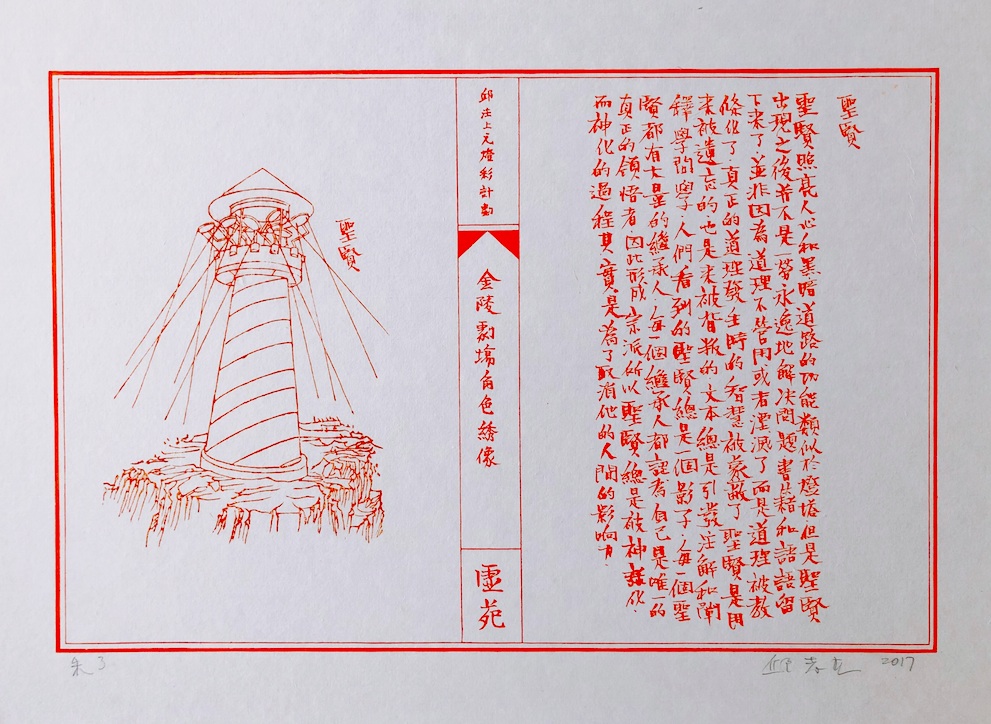 聖賢
聖賢照亮人心和黑暗道路的功能類似於燈塔.但是聖賢
出現之後并不是一勞永逸地解決問題.書籍和語語留
下來了.並非因為道理不管用或者湮滅了而是道理被教
條化了.真正的道理發生時的智慧被蒙蔽了聖賢是用
來被遺忘的.也是來被背叛的.文本總是引發注解和闡
釋學問學.人們看到的聖賢總是一個影子.每一個聖
賢都有大量的繼承人.每一個繼承人都認為自己是唯一的
真正的領悟者.因此形成宗派所以聖賢總是被神化.
而神化的過程其實是為了取消他的人間的影响力.
邱注上元燈彩計劃
金陵劇場角色綉像
虛苑
聖賢
朱3
2017